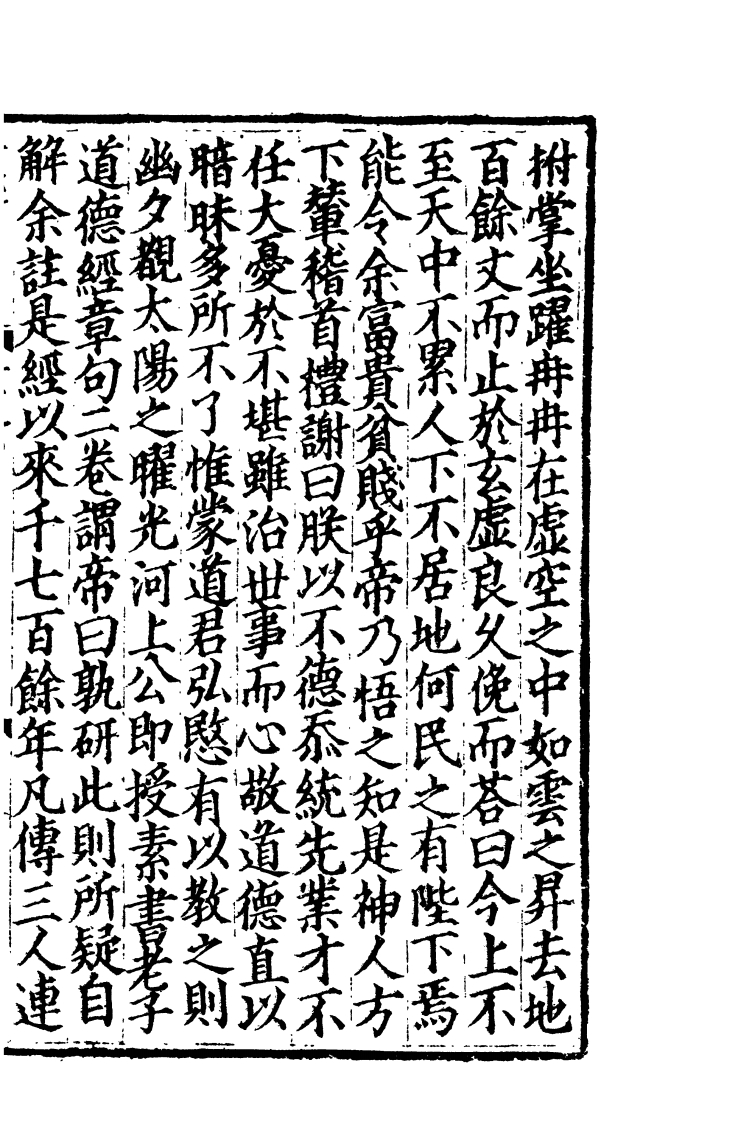 拊掌坐躍冉冉在虛空之中如雲之昇去地
百餘丈而止於玄虛良久俛而荅曰今上不
至天中不累人下不居地何民之有陛下焉
能令余富貴貧賤乎帝乃悟之知是神人方
下輦稽首禮謝曰朕以不德忝統先業才不
任大憂於不堪雖治世事而心敬道德直以
暗昧多所不了惟蒙道君弘愍有以教之則
幽夕覩太陽之曜光河上公即授素書老子
道德經章句二卷謂帝曰孰研此則所疑自
解余註是經以來千七百餘年凡傳三人連